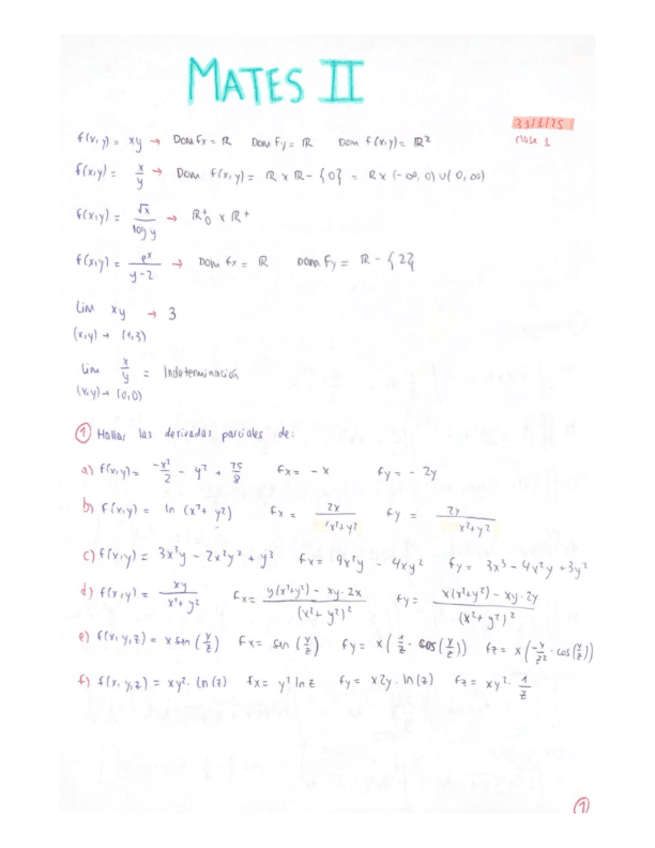 MATES II
25/1/25
clase 1
f(x,y) = xy → Dom fx = ℝ Dom fy = ℝ Dom f(x,y) = ℝ²
f(x,y) = x/y → Dom f(x,y) = ℝ x ℝ - {0} = ℝ x (-∞, 0) ∪ (0, ∞)
f(x,y) = √x / log y → ℝ₀⁺ x ℝ⁺
f(x,y) = eˣ / y-2 → Dom fx = ℝ Dom Fy = ℝ - {2}
Lim xy → 3
(x,y) → (1,3)
Lim x/y = Indeterminación
(x,y) → (0,0)
① Hallar las derivadas parciales de:
a) f(x,y) = -x²/2 - y² + 25/8 fx = -x fy = -2y
b) f(x,y) = ln (x²+y²) fx = 2x / x²+y² fy = 2y / x²+y²
c) f(x,y) = 3x³y - 2x²y² + y³ fx = 9x²y - 4xy² fy = 3x³ - 4x²y + 3y²
d) f(x,y) = xy / x²+y² fx = y(x²+y²) - xy·2x / (x²+y²)² fy = x(x²+y²) - xy·2y / (x²+y²)²
e) f(x,y,z) = x sen (y/z) fx = sen (y/z) fy = x(1/z · cos(y/z)) fz = x(-y/z² · cos(y/z))
f) f(x,y,z) = xy² · ln(z) fx = y² ln z fy = x2y · ln(z) fz = xy² · 1/z
①